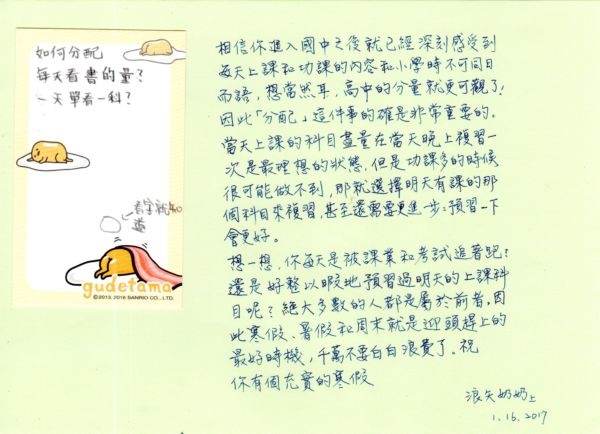 如何分配
每天看書的量?
一天單看一科?
看字就知
道
gudetama
©2013, 2016 SANRIO CO., LTD.
相信你進入國中之後就已經深刻感受到
每天上課和功課的內容和小學時不可同日
而語,想當然耳,高中的分量就更可觀了!
因此「分配」這件事的確是非常重要的。
當天上課的科目盡量在當天晚上複習一
次是最理想的狀態,但是功課多的時候
很可能做不到,那就選擇明天有課的那
個科目來複習,甚至還需要更進步:預習一下
會更好。
想一想,你每天是被課業和考試追著跑?
還是好整以暇地預習過明天的上課科
目呢?絕大多數的人都是屬於前者,因
此寒假、暑假和周末就是迎頭趕上的
最好時機,千萬不要白白浪費了。祝
你有個充實的寒假
浪矢奶奶上
1.16.2017